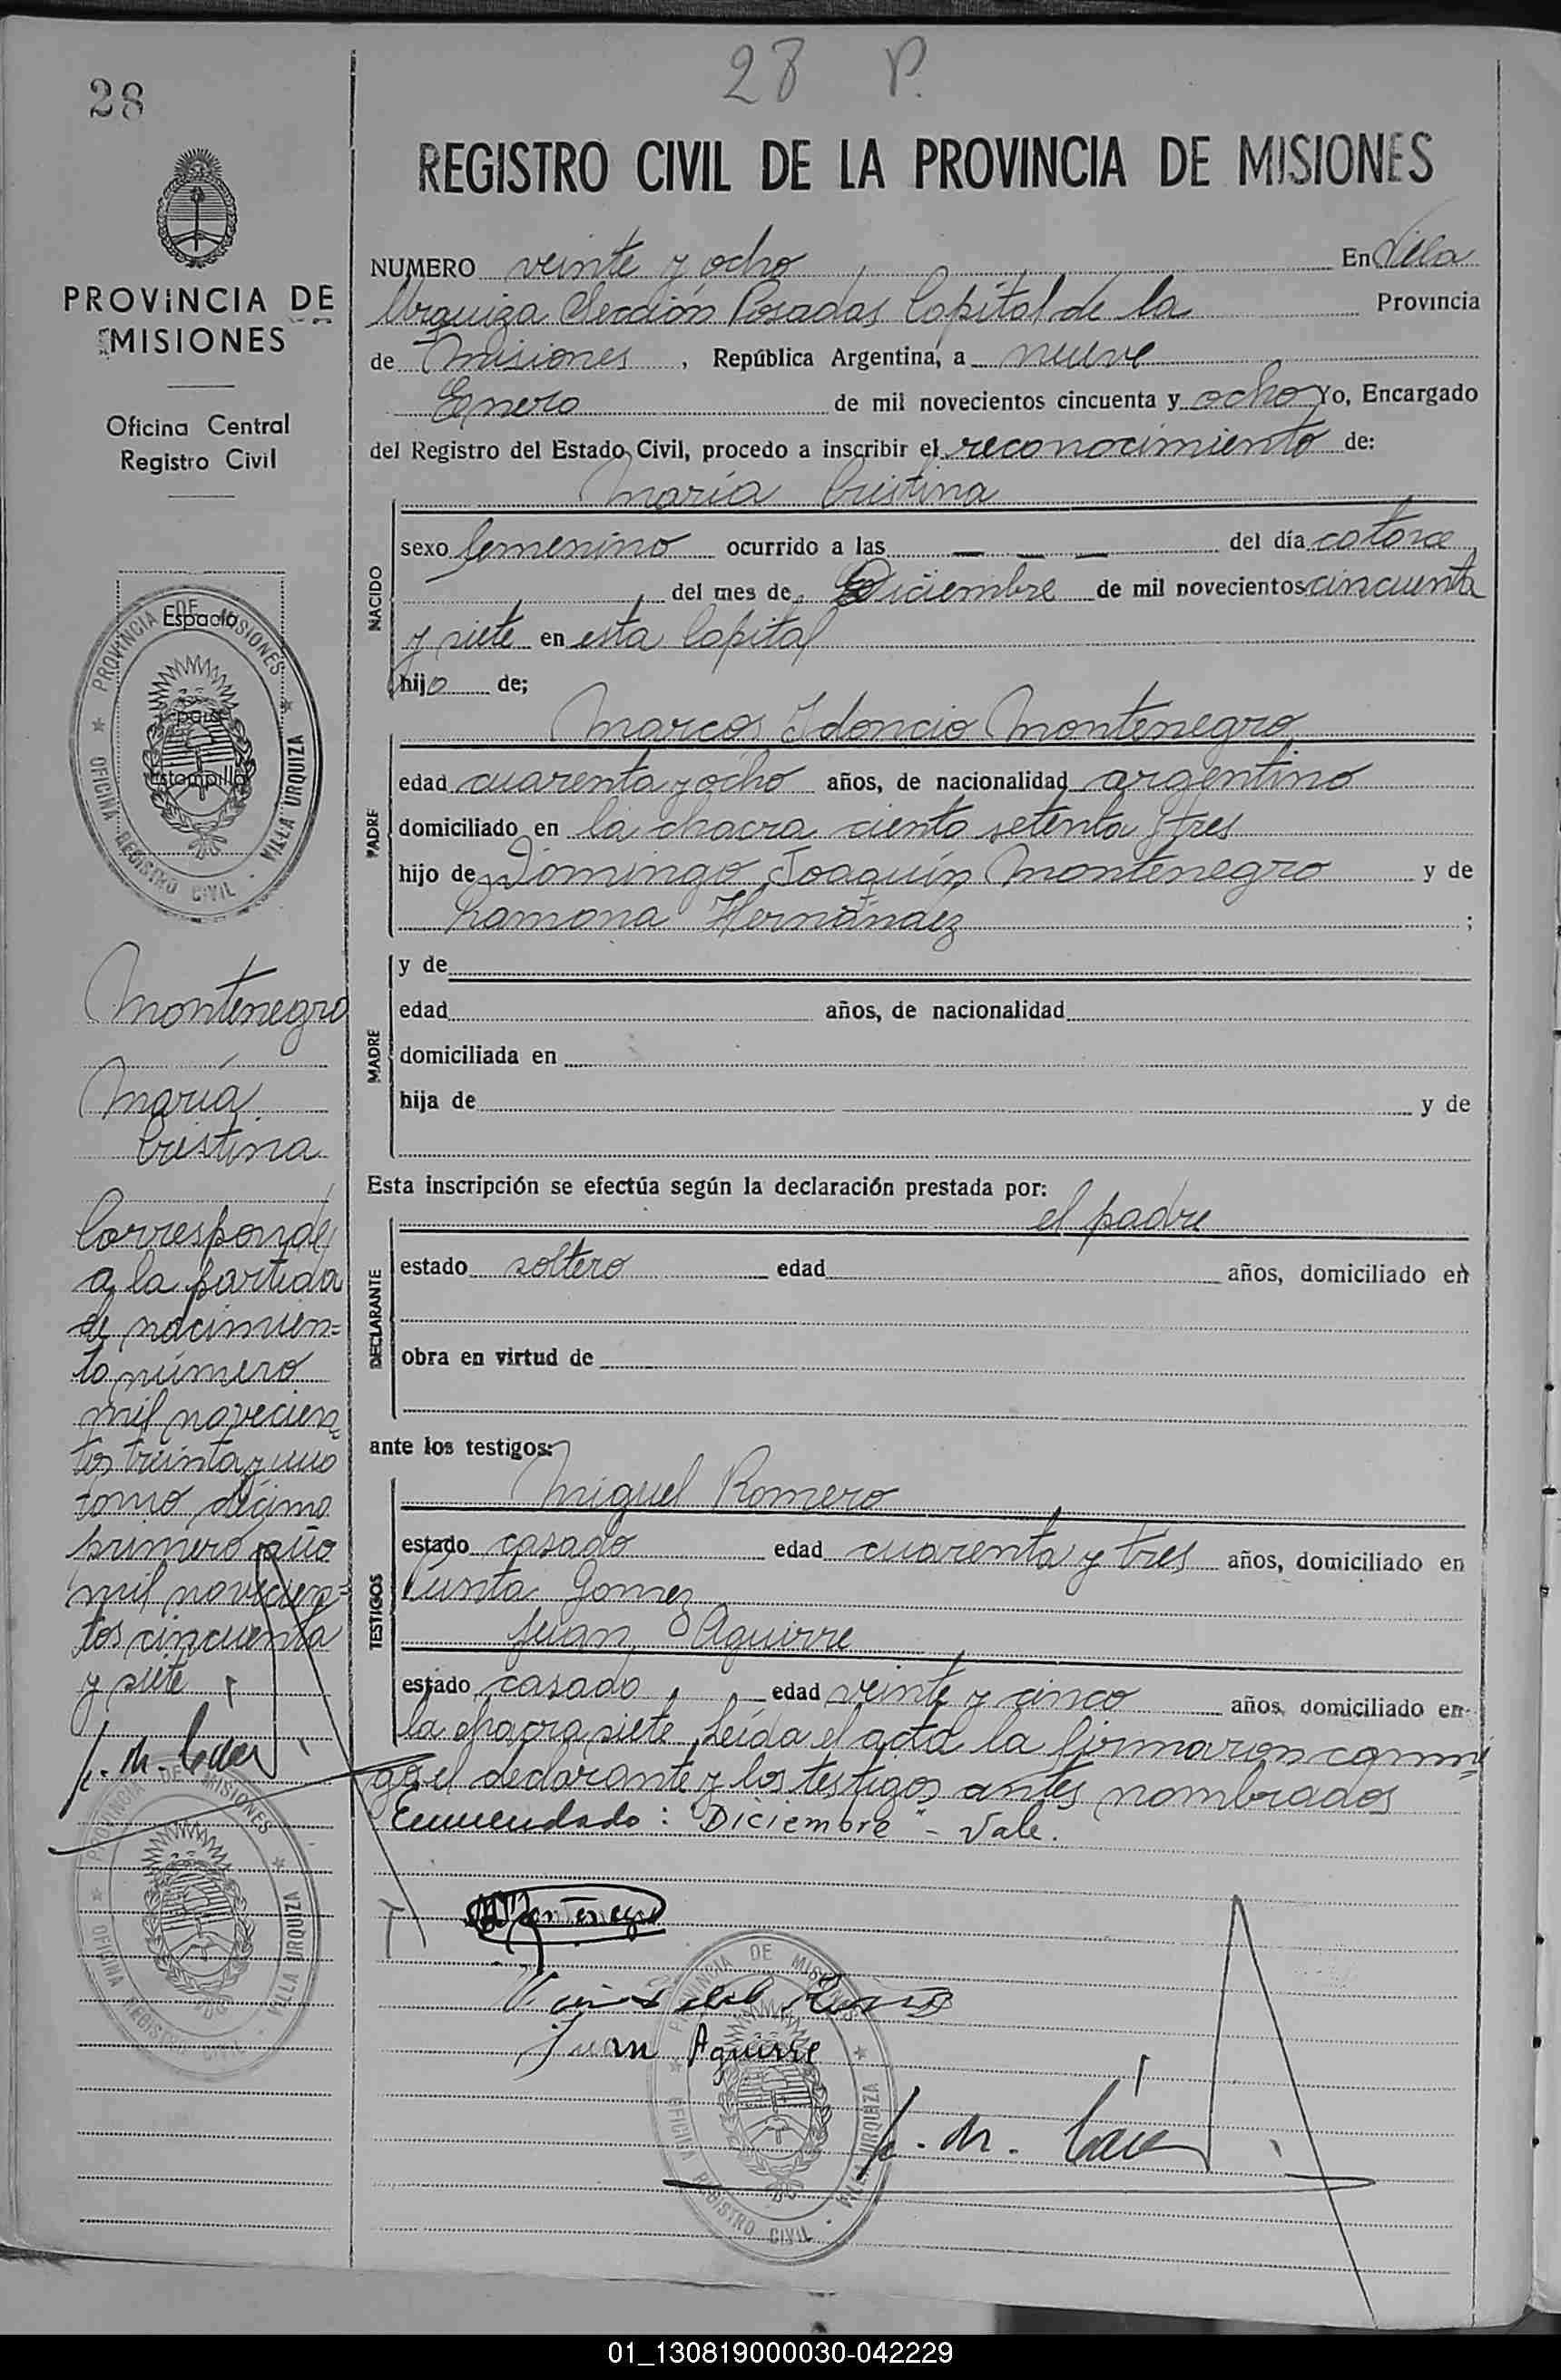 28 P.
28
REGISTRO CIVIL DE LA PROVINCIA DE MISIONES
PROVINCIA DE
MISIONES
Oficina Central
Registro Civil
Espacio
para
Estampilla
PROVINCIA DE MISIONES
OFICINA REGISTRO CIVIL - VILLA URQUIZA
Montenegro
María
Cristina
Corresponde
a la partida
de nacimien=
to número
mil novecien=
tos treinta y uno
tomo décimo
primero año
mil novecien=
tos cincuenta
y siete
PROVINCIA DE MISIONES
OFICINA REGISTRO CIVIL - VILLA URQUIZA
NUMERO veinte y ocho En Villa
Urquiza Sección Posadas Capital de la Provincia
de Misiones, República Argentina, a nueve
Enero de mil novecientos cincuenta y ocho Yo, Encargado
del Registro del Estado Civil, procedo a inscribir el reconocimiento de:
María Cristina
NACIDO
sexo femenino ocurrido a las — — — del día catorce
del mes de Diciembre de mil novecientos cincuenta
y siete en esta Capital
hijo de;
Marcos Idoncio Montenegro
PADRE
edad cuarenta y ocho años, de nacionalidad argentino
domiciliado en la chacra ciento setenta y tres
hijo de Domingo Joaquín Montenegro y de
Ramona Hernández ;
MADRE
y de
edad años, de nacionalidad
domiciliada en
hija de y de
Esta inscripción se efectúa según la declaración prestada por:
el padre
DECLARANTE
estado soltero edad años, domiciliado en
obra en virtud de
ante los testigos:
Miguel Romero
TESTIGOS
estado casado edad cuarenta y tres años, domiciliado en
Punta Gomez
Juan Aguirre
estado casado edad veinte y cinco años, domiciliado en
la chacra siete, Leída el acta la firmaron conmi=
go el declarante y los testigos antes nombrados
Enmendado: "Diciembre" - Vale.
Montenegro
Juan Aguirre
PROVINCIA DE MISIONES
OFICINA REGISTRO CIVIL - VILLA URQUIZA
01_130819000030-042229